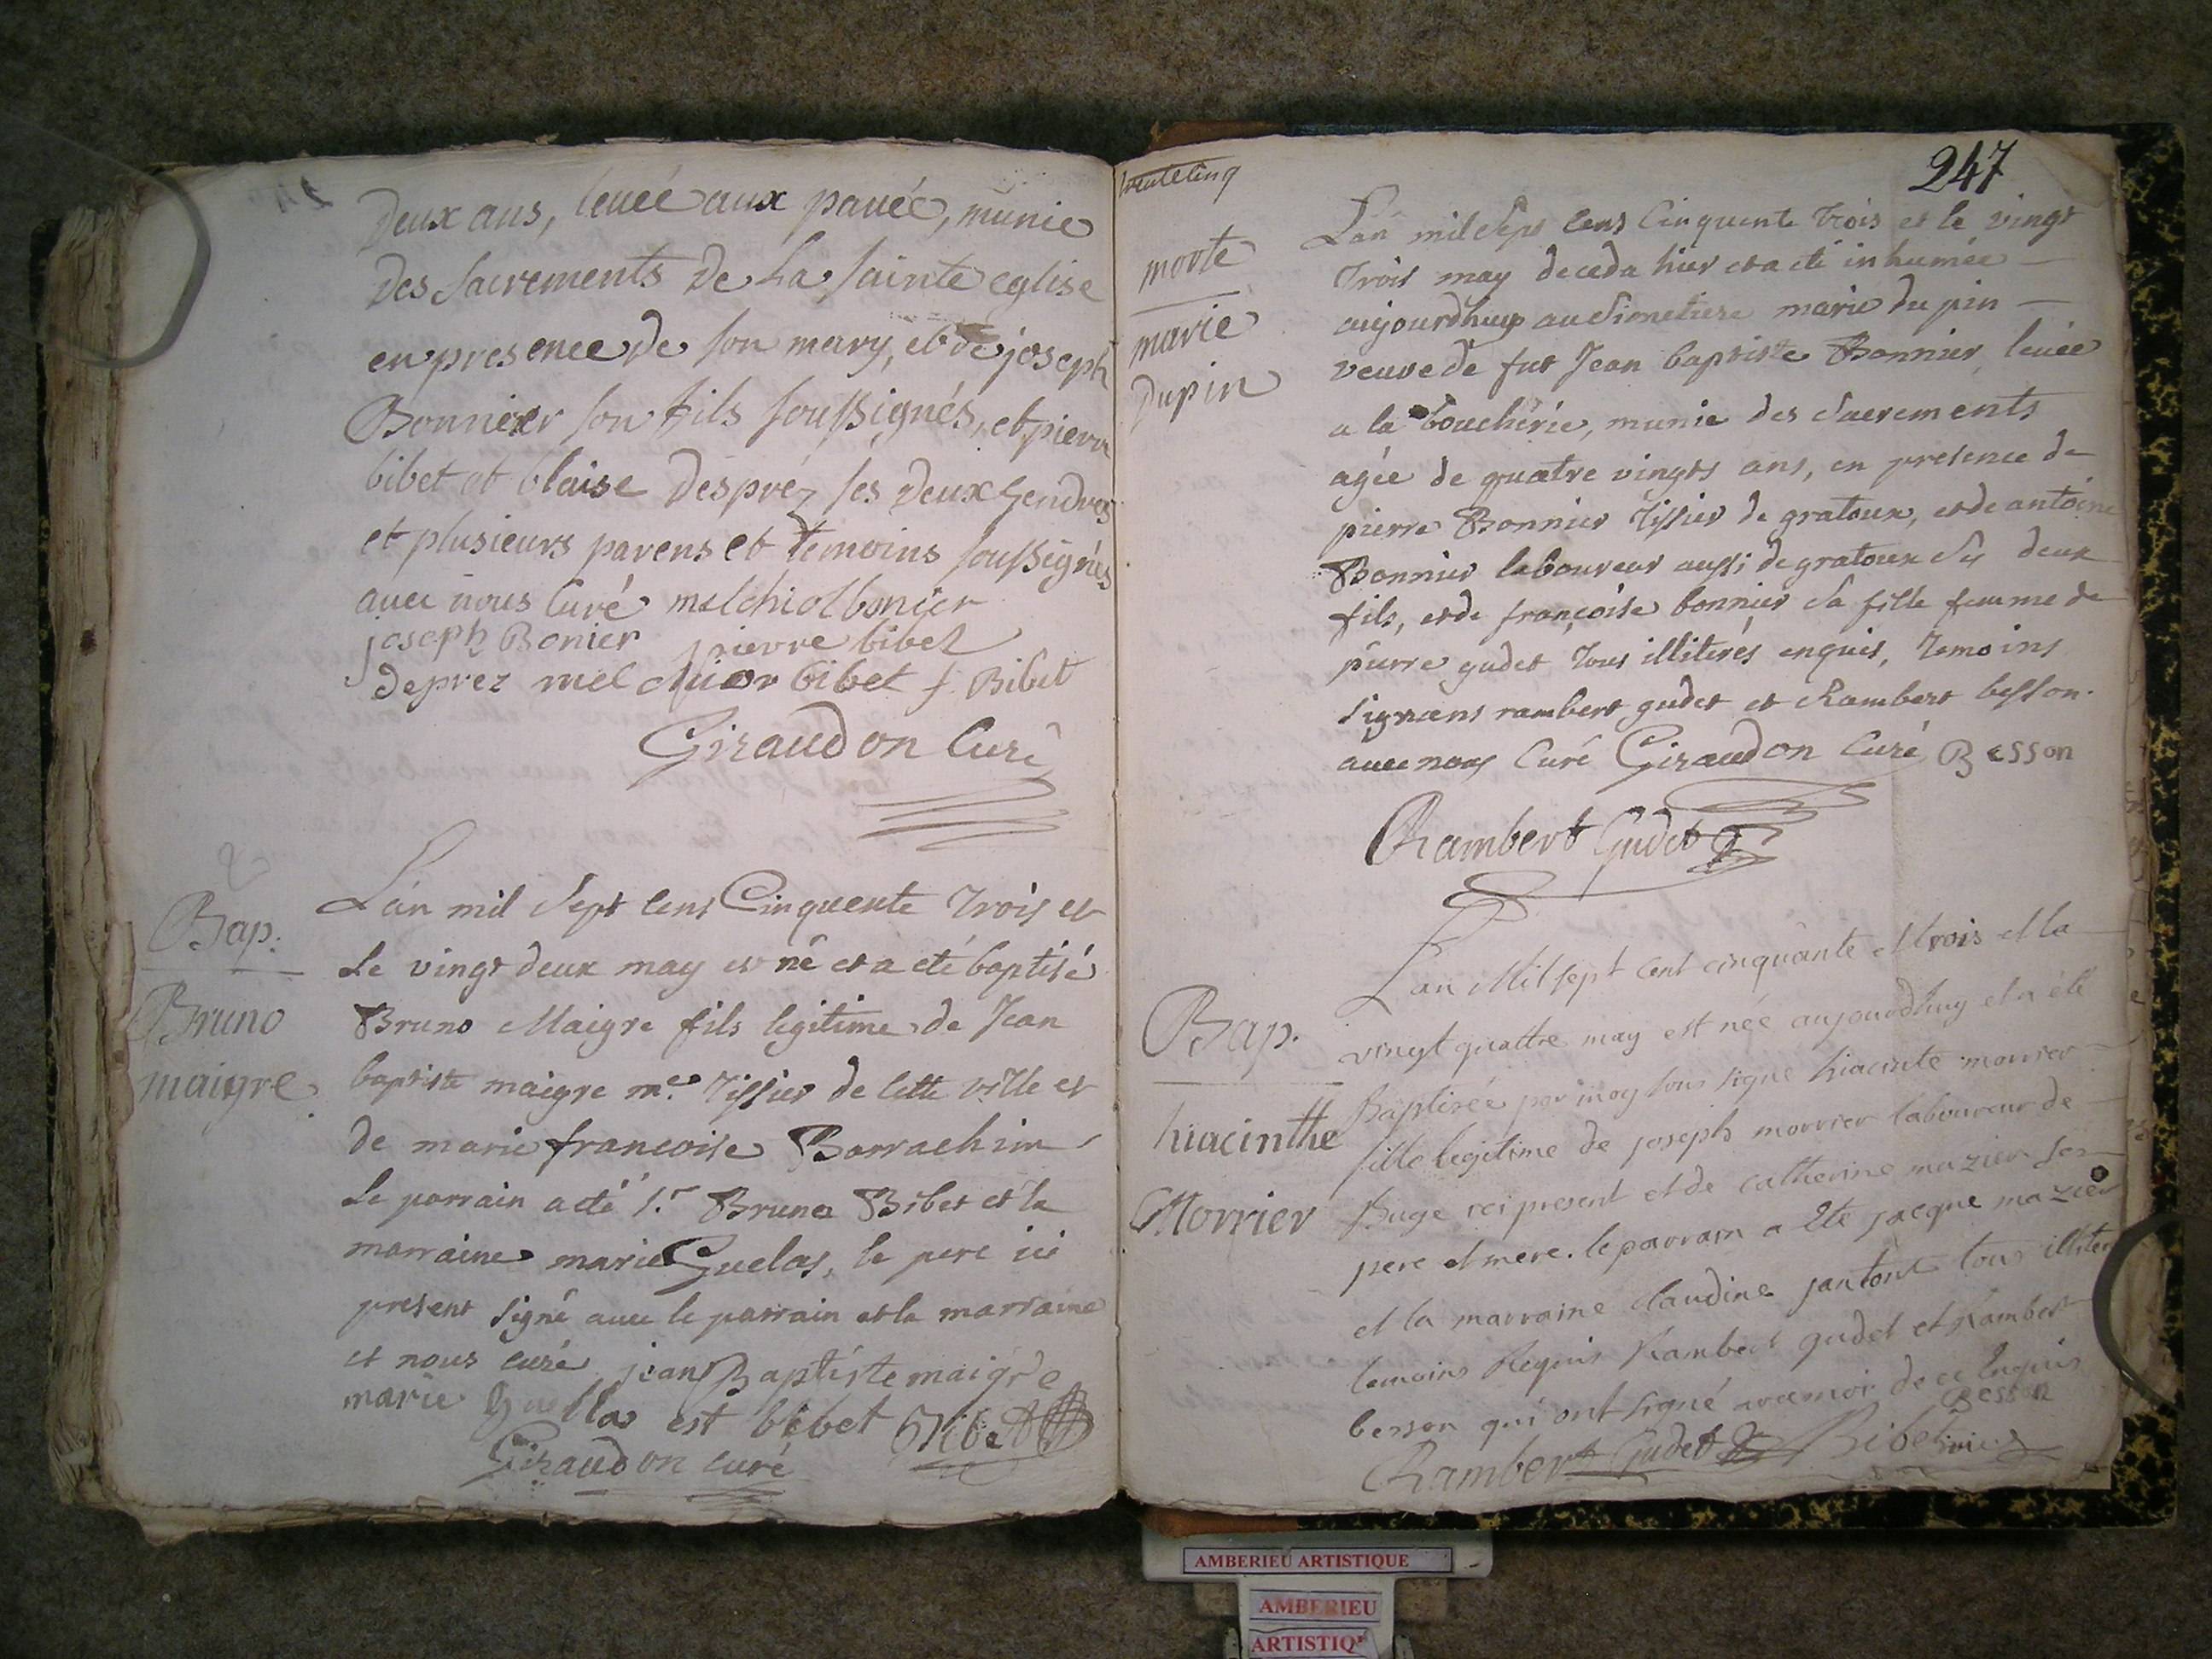 Deux ans, levée aux pavéé, munie
des sacrements de La sainte eglise
en presence de son mary, et de joseph
Bonnier son fils soussignés, et pierre
bibet et blaise Despréz ses deux gendres
et plusieurs parens et temoins soussignés
avec nous Curé melchiol bonier
joseph Bonier pierre bibet
deprez melchior bibet f. Bibet
Giraudon Curé
Bap.
Bruno
maigre
L'an mil sept cens Cinquente trois et
le vingt deux may est né et a eté baptisé
Bruno Maigre fils legitime de Jean
baptiste maigre me. tissier de cette ville et
de marie francoise Barrachin
le parrain a eté sr. Bruno Bibet et la
marraine marie Guelas, le pere ici
present signé avec le parrain et la marraine
et nous curé jean Baptiste maigre
marie guella est bibet Bibet
Giraudon curé
247
morte
marie
dupin
L'an mil sept cens Cinquente trois et le vingt
trois may deceda hier et a eté inhumée
aujourdhuy au simetiere marie du pin
veuve de fut Jean baptiste Bonnier levée
a la boucherie, munie des sacrements
agée de quatre vingts ans, en presence de
pierre Bonnier tissier de gratoux, et de antoine
Bonnier laboureur aussi de gratoux ses deux
fils, et de françoise bonnier sa fille femme de
pierre gudet tous illiterés enquis, temoins
signans rambert gudet et Rambert besson.
avec nous Curé Giraudon Curé Besson
Rambert Gudet
Bap.
hiacinthe
Morrier
L'an Mil sept cent cinquante et trois et la
vingt quattre may est néé aujourdhuy et a été
Baptiséé par moy sous signé hiacinte morrier
fille legitime de joseph morrier laboureur de
Buge ici present et de catherine mazier ses
pere et mere. le parrain a été jacque mazier
et la marraine claudine jantont tous illiter
temoins Requis Rambert gudet et Rambert
besson qui ont signé avec moi de ce Enquis
Besson
Rambert Gudet Bibet vic
AMBERIEU ARTISTIQUE
AMBERIEU
ARTISTIQ